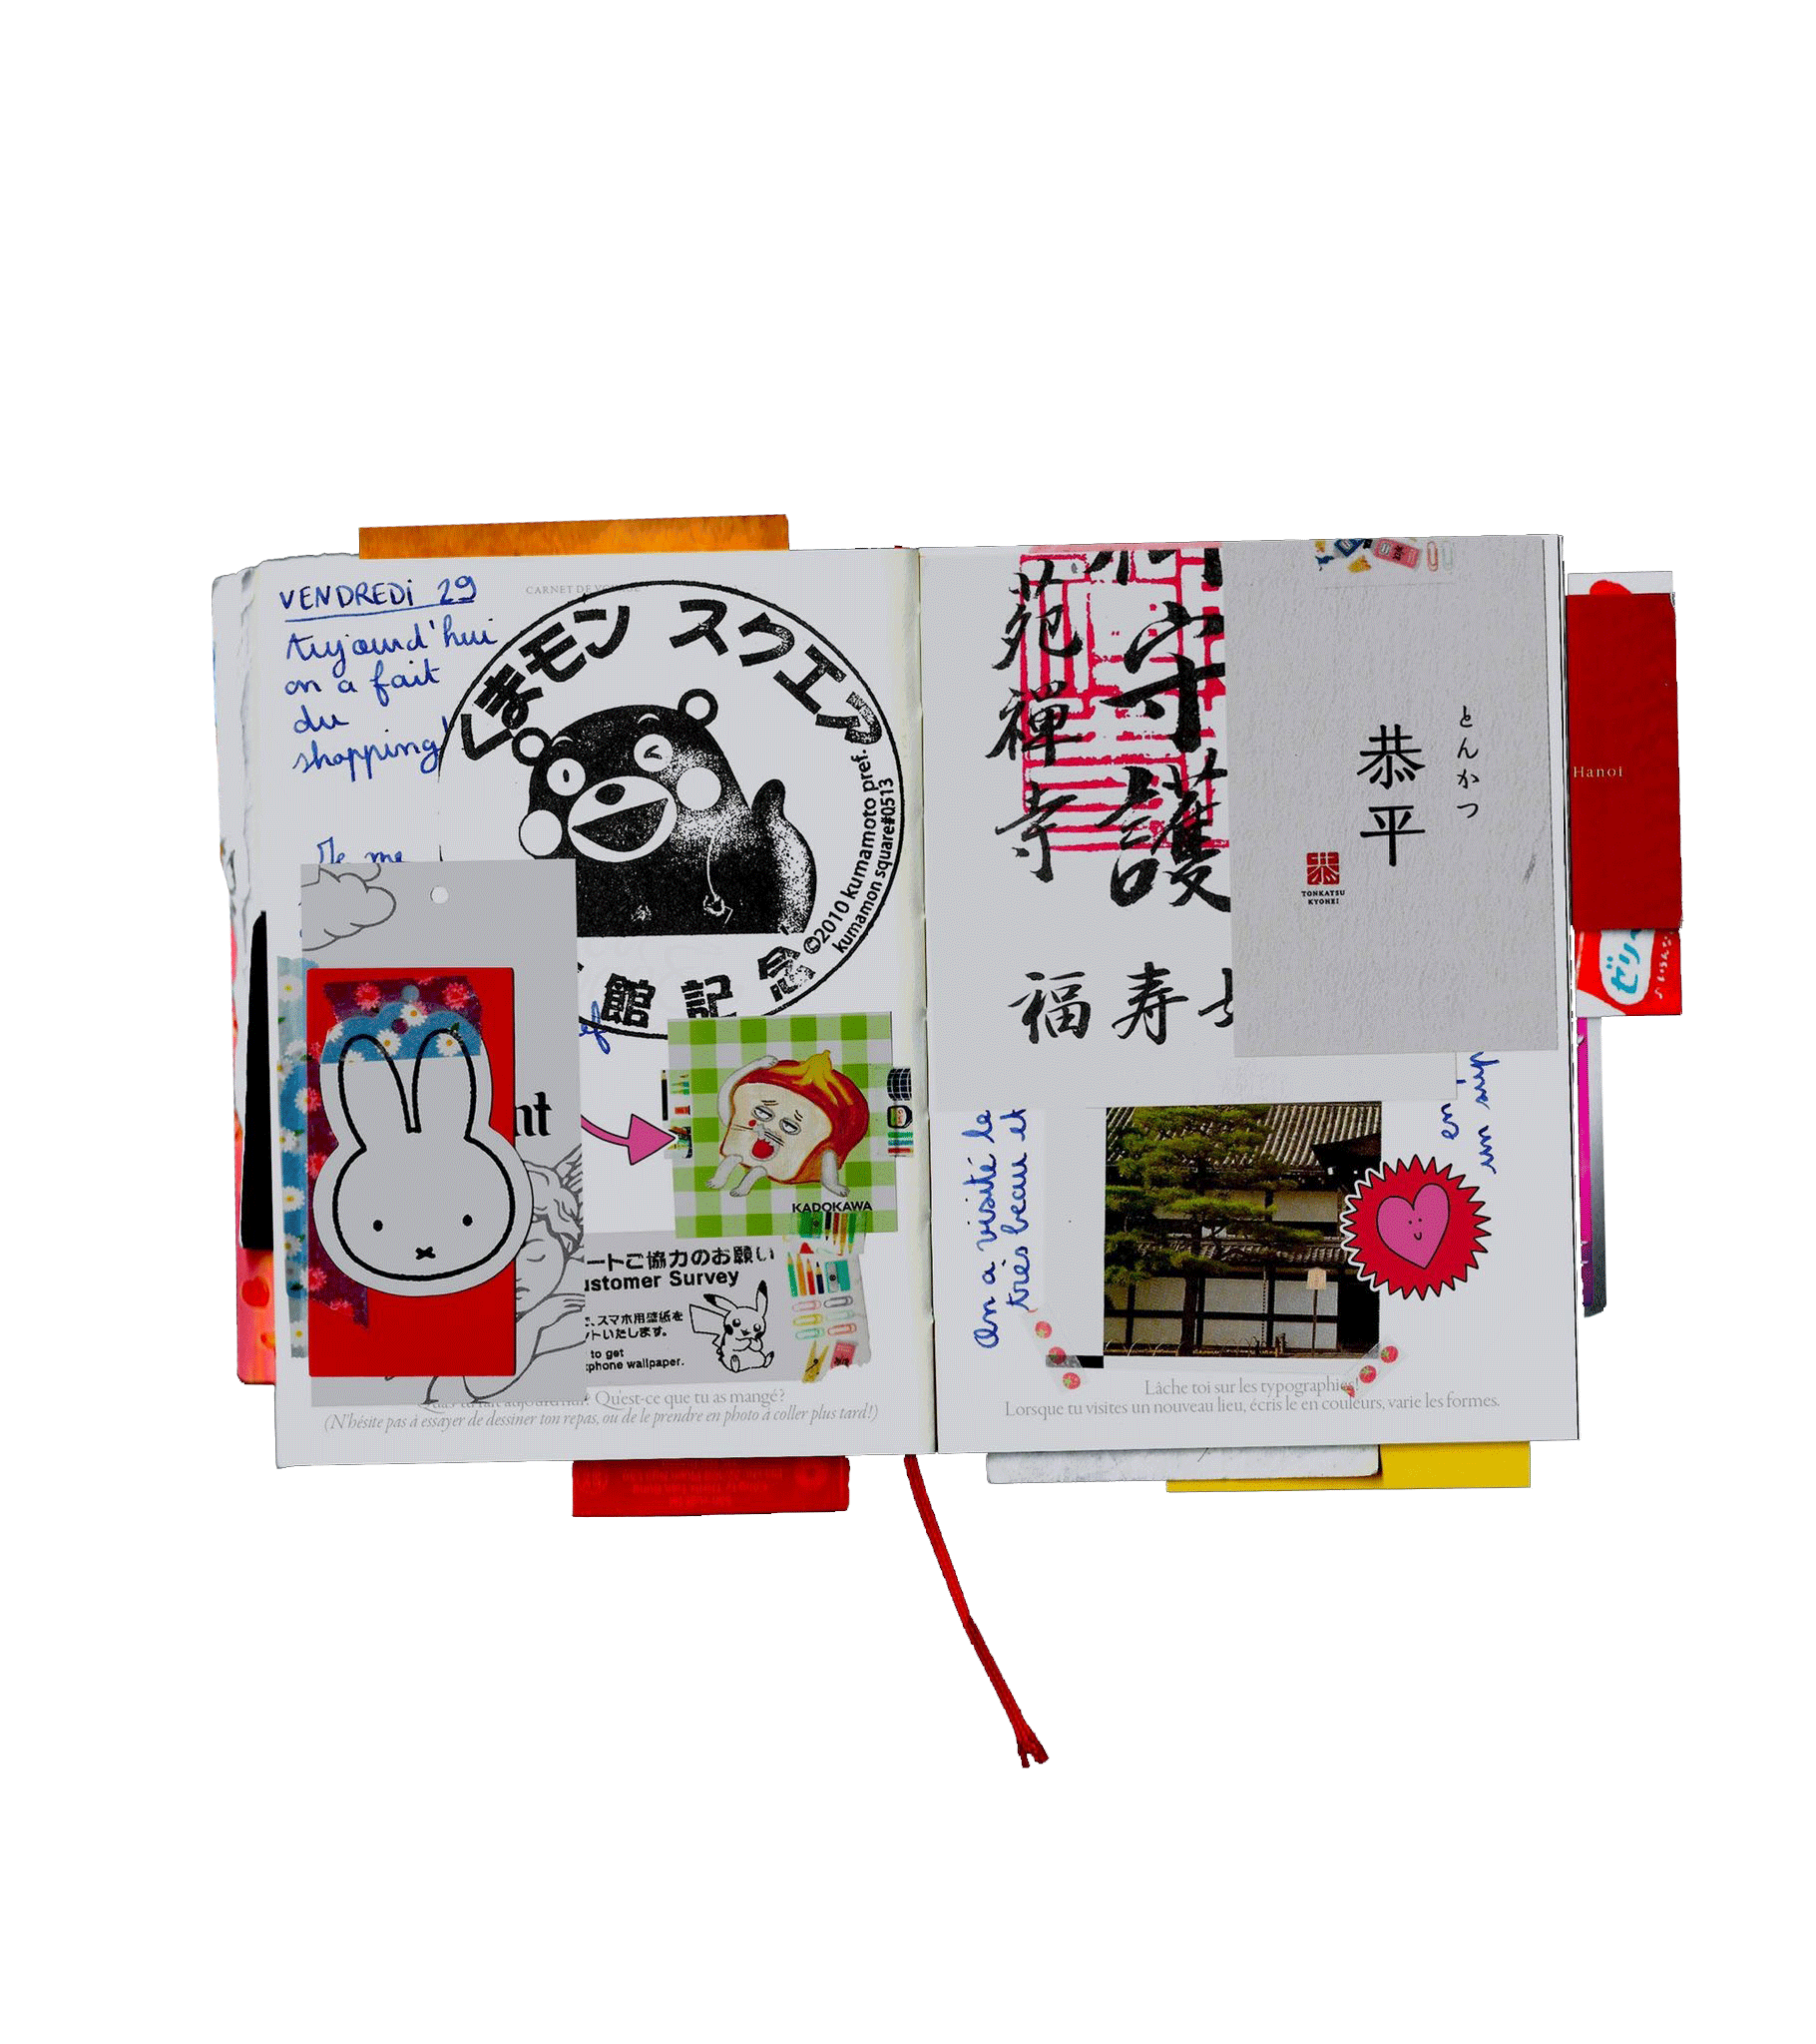 VENDREDI 29
Aujourd'hui
on a fait
du
shopping!
Je me
CARNET DE
くまモン スクエア
©2010 kumamoto pref.
kumamon square#0513
館 記 念
nt
KADOKAWA
ートご協力のお願い
ustomer Survey
、スマホ用壁紙を
ントいたします。
to get
phone wallpaper.
? Qu'est-ce que tu as mangé?
(N'hésite pas à essayer de dessiner ton repas, ou de le prendre en photo à coller plus tard!)
守護
苑禅寺
福寿
とんかつ
恭平
TONKATSU
KYOHEI
On a visité le
très beau et
en
un
Lâche toi sur les typographies!
Lorsque tu visites un nouveau lieu, écris le en couleurs, varie les formes.
Hanoi
ゼリ